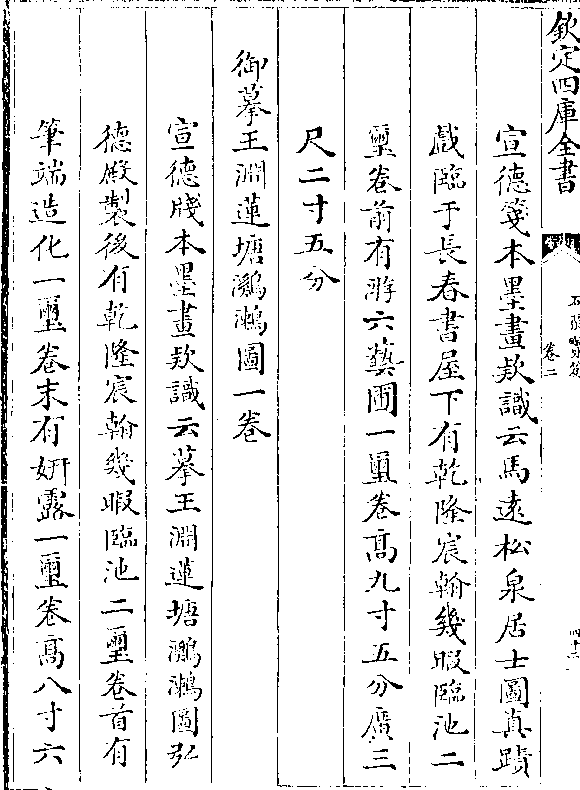 欽定四庫全書
卷二
宣德箋本墨畫欵識云馬遠松泉居士圖真蹟
戲臨于長春書屋下有乾隆宸翰幾暇臨池二
璽卷前有游六藝圃一璽卷高九寸五分廣三
尺二寸五分
御摹王淵蓮塘鸂鶒圖一卷
宣德牋本墨畫欵識云摹王淵蓮塘鸂鶒圖弘
德殿製後有乾隆宸翰幾暇臨池二璽卷首有
筆端造化一璽卷末有妍露一璽卷高八寸六